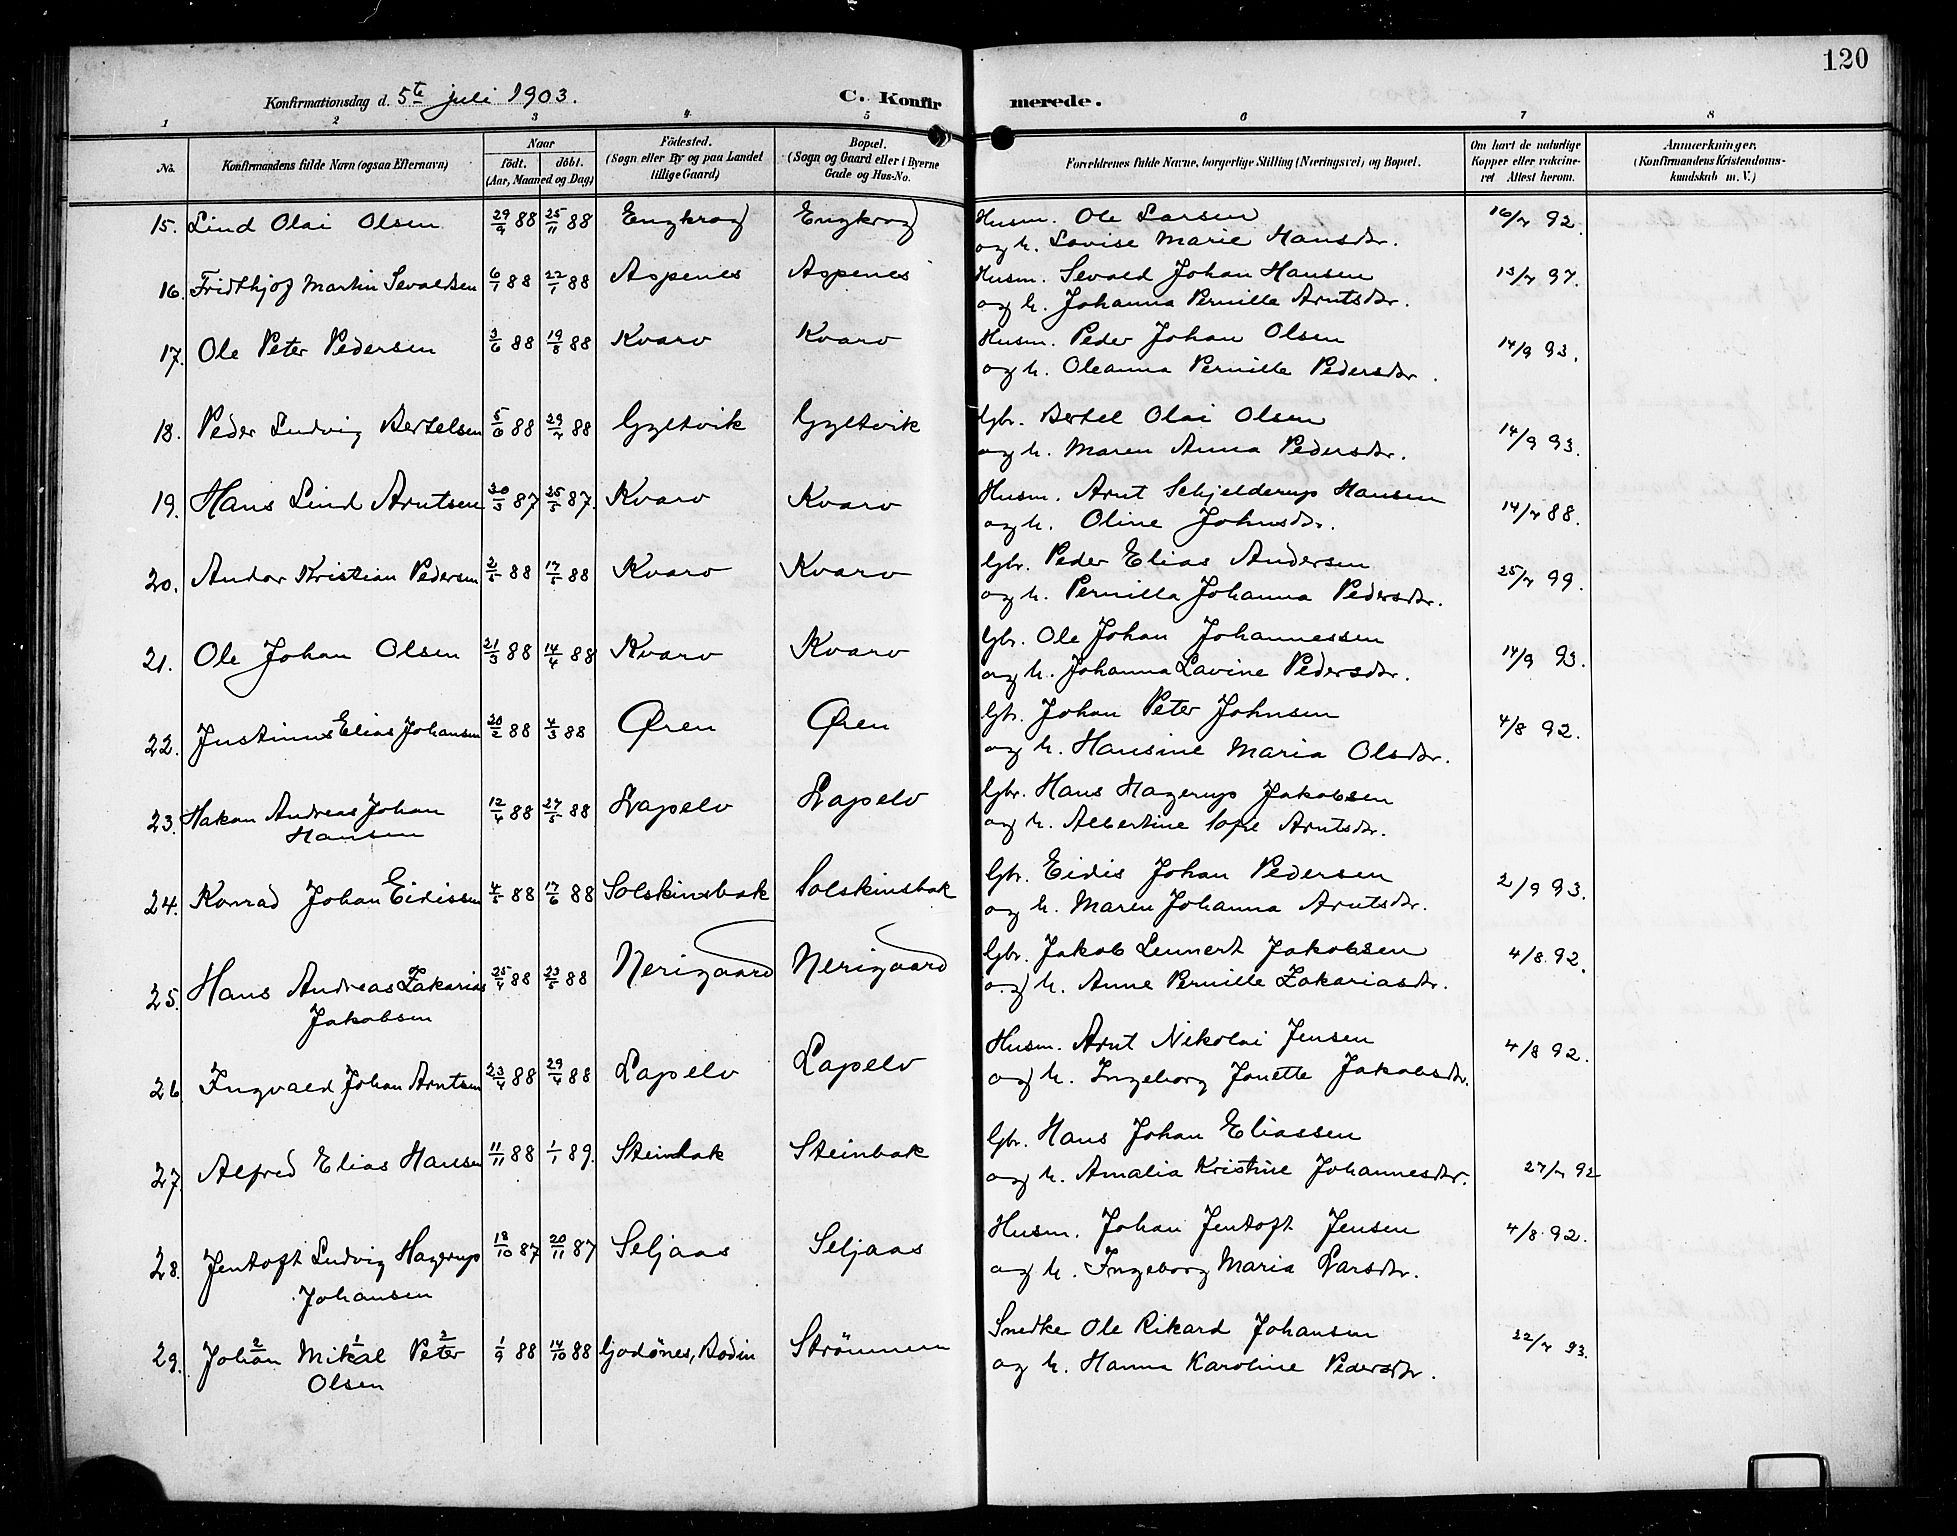 120
Konfirmationsdag d. 5te juli 1903. C. Konfirmerede.
1 2 3 4 5 6 7 8
No. Konfirmandens fulde Navn (ogsaa Efternavn) Naar födt. döbt. (Aar, Maaned og Dag) Födested. (Sogn eller By og paa Landet tillige Gaard) Bopæl. (Sogn og Gaard eller i Byerne Gade og Hus-No. Forældrenes fulde Navne, borgerlige Stilling (Næringsvei) og Bopæl. Om havt de naturlige Kopper eller vaccineret Attest herom. Anmerkninger, (Konfirmandens Kristendomskundskab m. V.)
15. Lind Olai Olsen 29/9 88 25/11 88 Engkrog Engkrog Husm. Ole Larsen 16/7 92.
og h. Lovise Marie Hansdtr.
16. Fridthjof Martin Sevaldsen 6/1 88 22/1 88 Aspenes Aspenes Husm. Sevald Johan Hansen 13/7 97.
og h. Johanna Pernille Arntsdtr.
17. Ole Peter Pedersen 3/6 88 19/8 88 Kvarv Kvarv Husm. Peder Johan Olsen 14/9 93.
og h. Oleanna Pernille Pedersdtr.
18. Peder Ludvig Bertelsen 5/6 88 29/7 88 Gyltvik Gyltvik Gbr. Bertel Olai Olsen 14/9 93.
og h. Maren Anna Pedersdtr.
19. Hans Lind Arntsen 30/3 87 25/5 87. Kvarv Kvarv Husm. Arnt Schjelderup Hansen 14/7 88.
og h. Oline Johnsdtr.
20. Andor Kristian Pedersen 2/5 88 17/5 88 Kvarv Kvarv Gbr. Peder Elias Andersen 25/7 99.
og h. Pernilla Johanna Pedersdtr.
21. Ole Johan Olsen 21/3 88 14/4 88 Kvarv Kvarv Gbr. Ole Johan Johannessen 14/9 93.
og h. Johanna Lavine Pedersdtr.
22. Justinus Elias Johansen 20/2 88 4/3 88 Øren Øren Gbr. Johan Peter Johnsen 4/8 92.
og h. Hansine Maria Olsdtr.
23. Hakon Andreas Johan 12/4 88 27/5 88 Lapelv Lapelv Gbr. Hans Hagerup Jakobsen
Hansen og h. Albertine Sofie Arntsdtr.
24. Konrad Johan Eidissen 4/5 88 17/6 88 Solskinsbak Solskinsbak Gbr. Eidis Johan Pedersen 2/9 93.
og h. Maren Johanna Arntsdtr.
25. Hans Andreas Zakarias 25/4 88 23/5 88 Nerigaard Nerigaard Gbr. Jakob Lennert Jakobsen 4/8 92.
Jakobsen og h. Anne Pernille Zakariasdtr.
26. Ingvald Johan Arntsen 23/4 88 29/4 88 Lapelv Lapelv Husm. Arnt Nikolai Jensen 4/8 92.
og h. Ingeborg Jonette Jakobsdtr.
27. Alfred Elias Hansen 11/11 88 1/1 89. Steinbak Steinbak Gbr. Hans Johan Eliassen
og h. Amalia Kristine Johannesdtr. 27/7 92
28. Jentoft Ludvig Hagerup 18/10 87 20/11 87 Seljaas Seljaas Husm. Johan Jentoft Jensen 4/8 92.
Johansen og h. Ingeborg Maria Larsdtr.
29. Johan 2 Mikal 1 Peter 2 1/9 88 14/10 88 Godönes, Bodin Strömmen Snedker Ole Rikard Johansen 22/7 93.
Olsen og h. Hanna Karoline Pedersdtr.